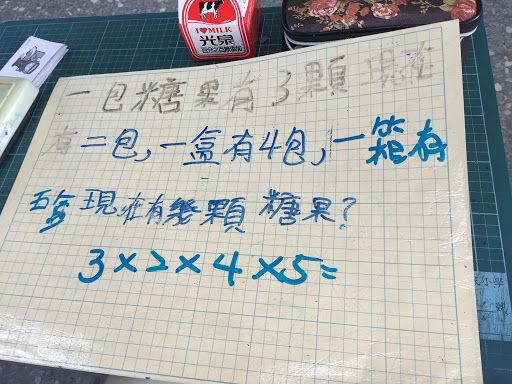 I♥MILK
光泉
一包糖果有3顆 現在
有二包,一盒有4包,一箱有
5盒 現在有幾顆糖果?
3×2×4×5=